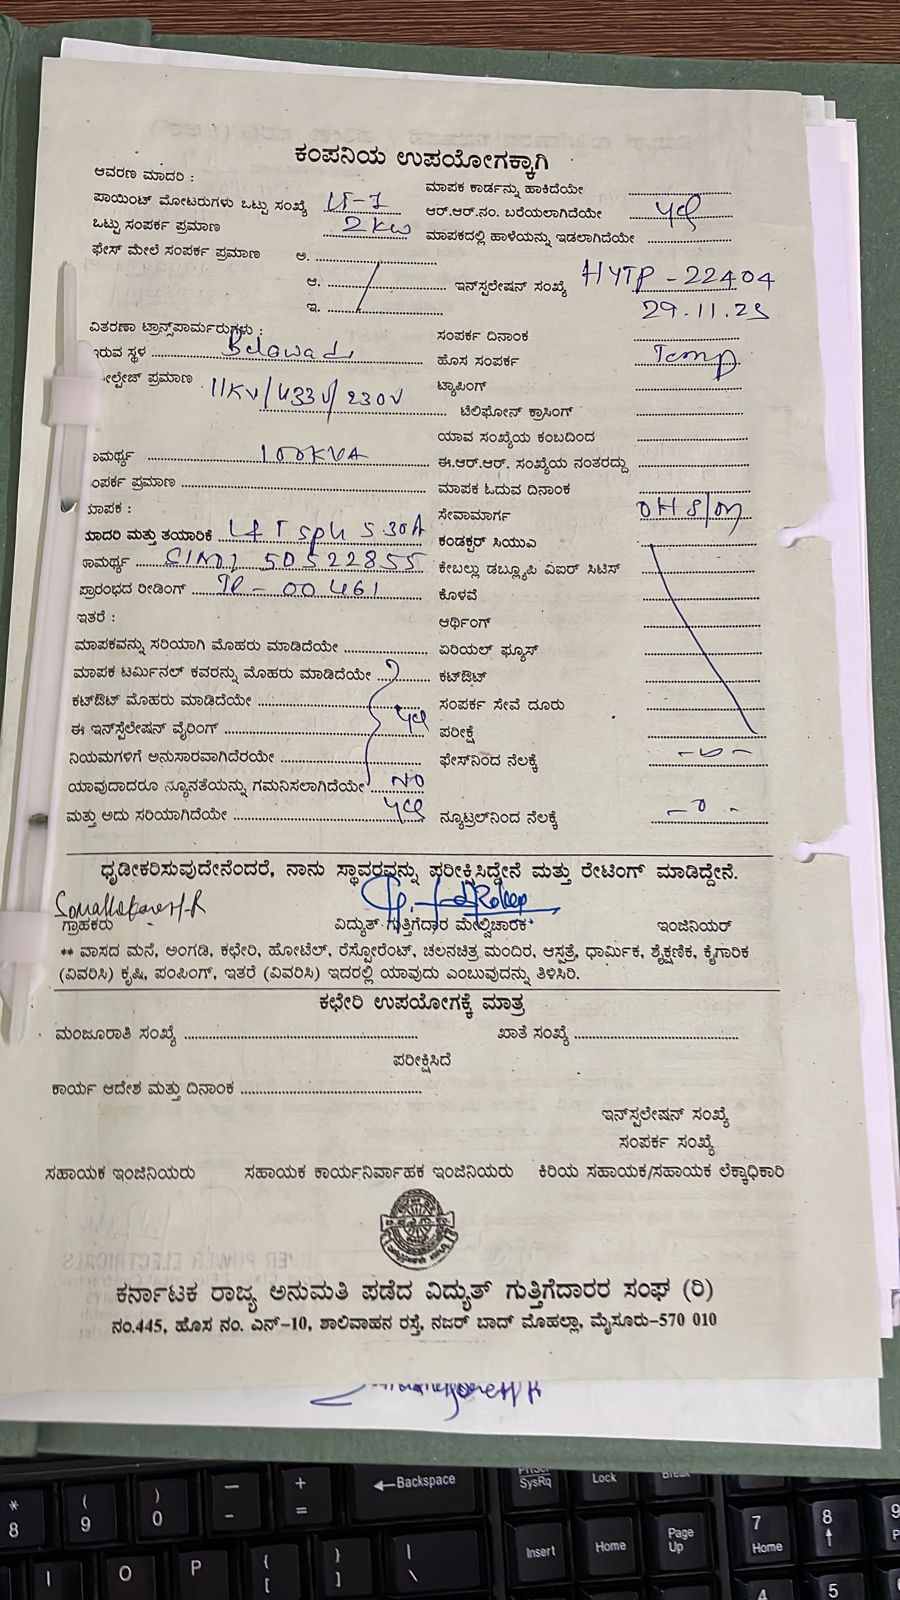 ಕಂಪನಿಯ ಉಪಯೋಗಕ್ಕಾಗಿ
ಆವರಣ ಮಾದರಿ :
ಮಾಪಕ ಕಾರ್ಡನ್ನು ಹಾಕಿದೆಯೇ
ಪಾಯಿಂಟ್ ಮೋಟರುಗಳು ಒಟ್ಟು ಸಂಖ್ಯೆ LT-7
ಆರ್.ಆರ್.ನಂ. ಬರೆಯಲಾಗಿದೆಯೇ
ಒಟ್ಟು ಸಂಪರ್ಕ ಪ್ರಮಾಣ 2 kw
ಮಾಪಕದಲ್ಲಿ ಹಾಳೆಯನ್ನು ಇಡಲಾಗಿದೆಯೇ
ಫೇಸ್ ಮೇಲೆ ಸಂಪರ್ಕ ಪ್ರಮಾಣ ಅ.
ಆ.
ಇನ್‌ಸ್ಪಲೇಷನ್ ಸಂಖ್ಯೆ HYTP-22404
ಇ.
29.11.25
ವಿತರಣಾ ಟ್ರಾನ್ಸ್‌ಪಾರ್ಮರುಗಳು :
ಸಂಪರ್ಕ ದಿನಾಂಕ
ಇರುವ ಸ್ಥಳ Belawadi
ಹೊಸ ಸಂಪರ್ಕ Temp
ಪ್ರಮಾಣ 11KV/433V/230V
ಟ್ಯಾಪಿಂಗ್
ಟೆಲಿಫೋನ್ ಕ್ರಾಸಿಂಗ್
ಯಾವ ಸಂಖ್ಯೆಯ ಕಂಬದಿಂದ
100KVA
ಈ.ಆರ್.ಆರ್. ಸಂಖ್ಯೆಯ ನಂತರದ್ದು
ಪ್ರಮಾಣ
ಮಾಪಕ ಓದುವ ದಿನಾಂಕ
ಮಾಪಕ :
ಸೇವಾಮಾರ್ಗ
ಮಾದರಿ ಮತ್ತು ತಯಾರಿಕೆ L&T sph 5-30A
ಕಂಡಕ್ಟರ್ ಸಿಯುಎ
50522855
ಕೇಬಲ್ಲು ಡಬ್ಲ್ಯೂಪಿ ಎಐರ್ ಸಿಟಿಸ್
ಪ್ರಾರಂಭದ ರೀಡಿಂಗ್ 00461
ಕೊಳವೆ
ಇತರೆ :
ಆರ್ಥಿಂಗ್
ಮಾಪಕವನ್ನು ಸರಿಯಾಗಿ ಮೊಹರು ಮಾಡಿದೆಯೇ
ಏರಿಯಲ್ ಫ್ಯೂಸ್
ಮಾಪಕ ಟರ್ಮಿನಲ್ ಕವರನ್ನು ಮೊಹರು ಮಾಡಿದೆಯೇ
ಕಟ್‌ಔಟ್
ಕಟ್‌ಔಟ್ ಮೊಹರು ಮಾಡಿದೆಯೇ
ಸಂಪರ್ಕ ಸೇವೆ ದೂರು
ಈ ಇನ್‌ಸ್ಪೆಲೇಷನ್ ವೈರಿಂಗ್
ಪರೀಕ್ಷೆ
ನಿಯಮಗಳಿಗೆ ಅನುಸಾರವಾಗಿದೆರಯೇ
ಫೇಸ್‌ನಿಂದ ನೆಲಕ್ಕೆ
ಯಾವುದಾದರೂ ನ್ಯೂನತೆಯನ್ನು ಗಮನಿಸಲಾಗಿದೆಯೇ NO
ಮತ್ತು ಅದು ಸರಿಯಾಗಿದೆಯೇ
ನ್ಯೂಟ್ರಲ್‌ನಿಂದ ನೆಲಕ್ಕೆ
ಧೃಡೀಕರಿಸುವುದೇನೆಂದರೆ, ನಾನು ಸ್ಥಾವರವನ್ನು ಪರೀಕ್ಷಿಸಿದ್ದೇನೆ ಮತ್ತು ರೇಟಿಂಗ್ ಮಾಡಿದ್ದೇನೆ.
ಗ್ರಾಹಕರು ವಿದ್ಯುತ್ ಗುತ್ತಿಗೆದಾರ ಮೇಲ್ವಿಚಾರಕ* ಇಂಜಿನಿಯರ್
** ವಾಸದ ಮನೆ, ಅಂಗಡಿ, ಕಛೇರಿ, ಹೋಟೆಲ್, ರೆಸ್ಪೋರೆಂಟ್, ಚಲನಚಿತ್ರ ಮಂದಿರ, ಆಸ್ಪತ್ರೆ, ಧಾರ್ಮಿಕ, ಶೈಕ್ಷಣಿಕ, ಕೈಗಾರಿಕ
(ವಿವರಿಸಿ) ಕೃಷಿ, ಪಂಪಿಂಗ್, ಇತರೆ (ವಿವರಿಸಿ) ಇದರಲ್ಲಿ ಯಾವುದು ಎಂಬುವುದನ್ನು ತಿಳಿಸಿರಿ.
ಕಛೇರಿ ಉಪಯೋಗಕ್ಕೆ ಮಾತ್ರ
ಮಂಜೂರಾತಿ ಸಂಖ್ಯೆ ಖಾತೆ ಸಂಖ್ಯೆ
ಪರೀಕ್ಷಿಸಿದೆ
ಕಾರ್ಯ ಆದೇಶ ಮತ್ತು ದಿನಾಂಕ
ಇನ್‌ಸ್ಪಲೇಷನ್ ಸಂಖ್ಯೆ
ಸಂಪರ್ಕ ಸಂಖ್ಯೆ
ಸಹಾಯಕ ಇಂಜಿನಿಯರು ಸಹಾಯಕ ಕಾರ್ಯನಿರ್ವಾಹಕ ಇಂಜಿನಿಯರು ಕಿರಿಯ ಸಹಾಯಕ/ಸಹಾಯಕ ಲೆಕ್ಕಾಧಿಕಾರಿ
ಕರ್ನಾಟಕ ರಾಜ್ಯ ಅನುಮತಿ ಪಡೆದ ವಿದ್ಯುತ್ ಗುತ್ತಿಗೆದಾರರ ಸಂಘ (ರಿ)
ನಂ.445, ಹೊಸ ನಂ. ಎನ್-10, ಶಾಲಿವಾಹನ ರಸ್ತೆ, ನಜರ್ ಬಾದ್ ಮೊಹಲ್ಲಾ, ಮೈಸೂರು-570 010
← Backspace
PrtScr
SysRq
Lock
Break
Insert
Home
Page
Up
7
Home
8
9
* 8
( 9
) 0
+ =
I O P { [ } ] | \
4 5